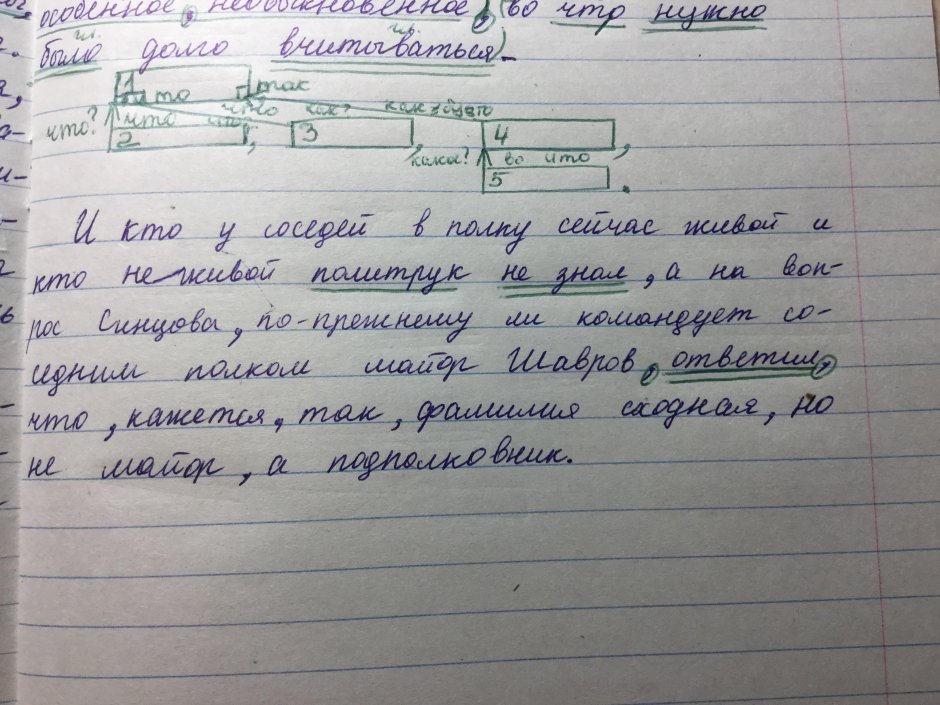 особенное, необыкновенное, во что нужно
было долго вчитываться.
1
так
что?
2
3
4
какое?
во что
5
И кто у соседей в полку сейчас живой и
кто не живой политрук не знал, а на воп-
рос Синцова, по-прежнему ли командует со-
едним полком майор Шавров, ответил,
что, кажется, так, фамилия сходная, но
не майор, а подполковник.